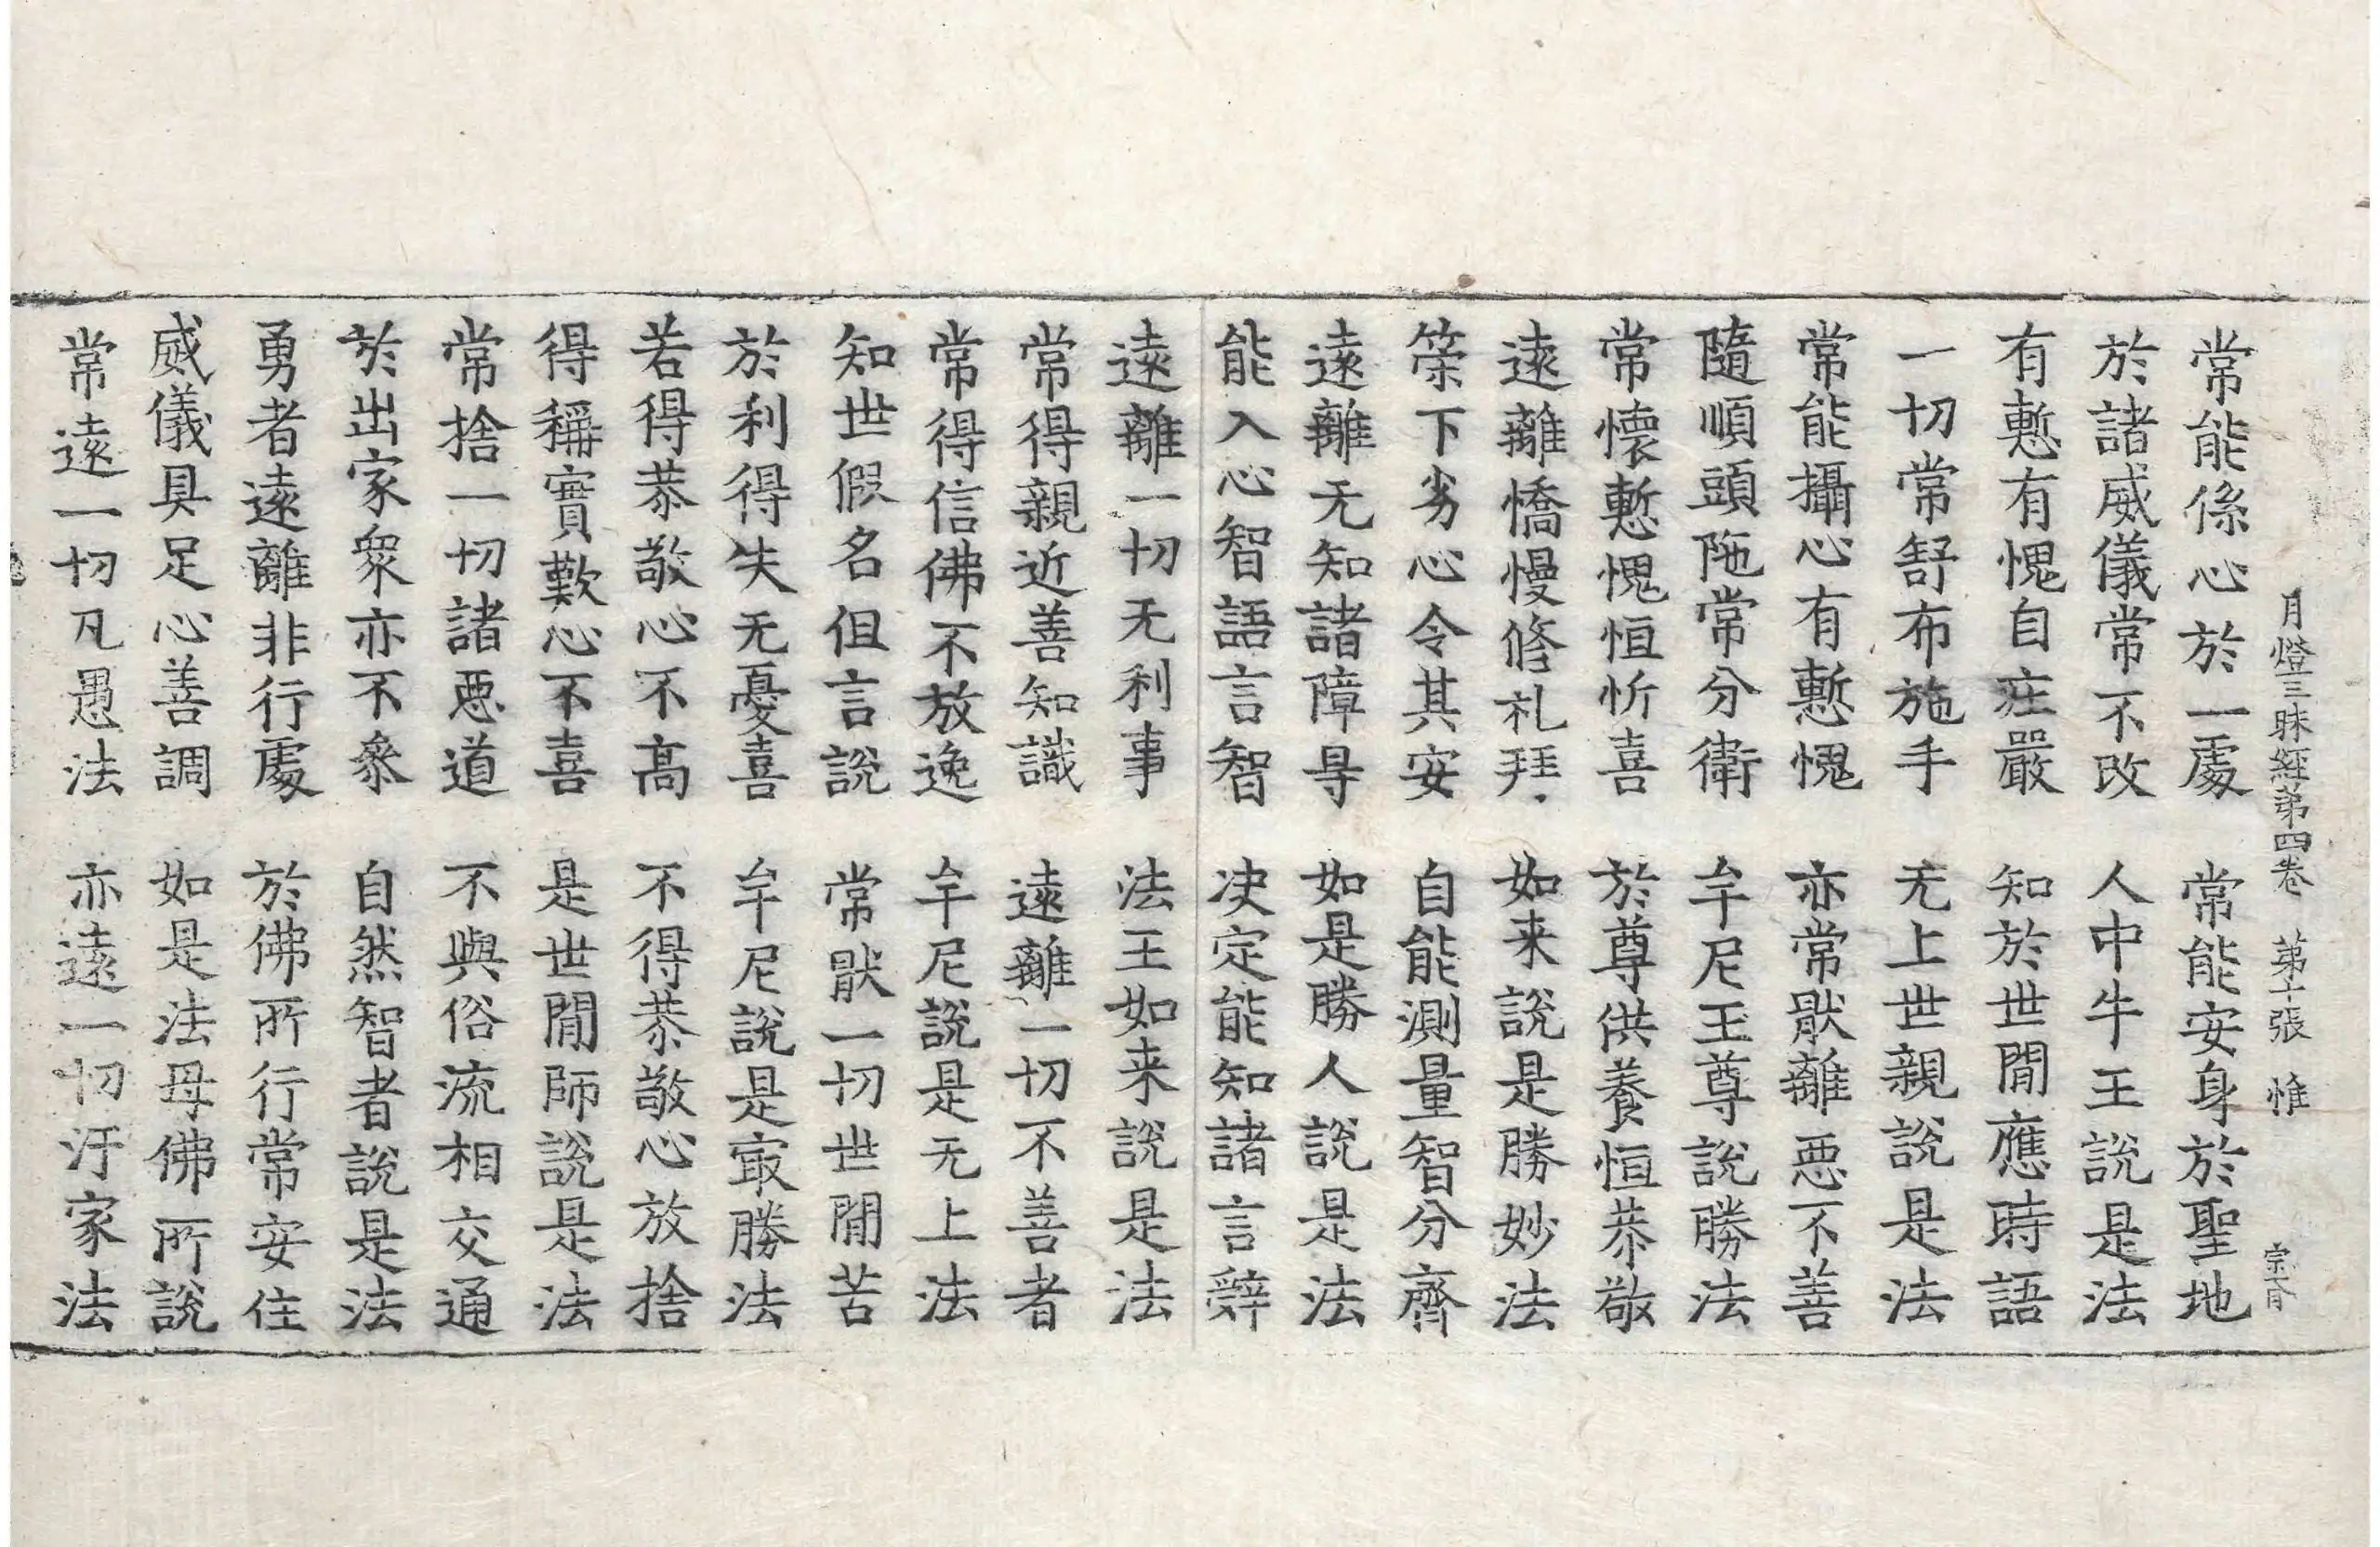 月燈三昧經第四卷 第十張 惟 宗盲
常能係心於一處 常能安身於聖地
於諸威儀常不改 人中牛王說是法
有慙有愧自庄嚴 知於世閒應時語
一切常舒布施手 无上世親說是法
常能攝心有慙愧 亦常猒離惡不善
隨順頭陁常分衛 牟尼王尊說勝法
常懷慙愧恒忻喜 於尊供養恒恭敬
遠離憍慢修礼拜 如来說是勝妙法
策下劣心令其安 自能測量智分齊
遠離无知諸障㝵 如是勝人說是法
能入心智語言智 决定能知諸言辭
遠離一切无利事 法王如来說是法
常得親近善知識 遠離一切不善者
常得信佛不放逸 牟尼說是无上法
知世假名但言說 常猒一切世閒苦
於利得失无憂喜 牟尼說是㝡勝法
若得恭敬心不高 不得恭敬心放捨
得稱實歎心不喜 是世閒師說是法
常捨一切諸惡道 不與俗流相交通
於出家衆亦不叅 自然智者說是法
勇者遠離非行處 於佛所行常安住
威儀具足心善調 如是法母佛所說
常遠一切凡愚法 亦遠一切汙家法